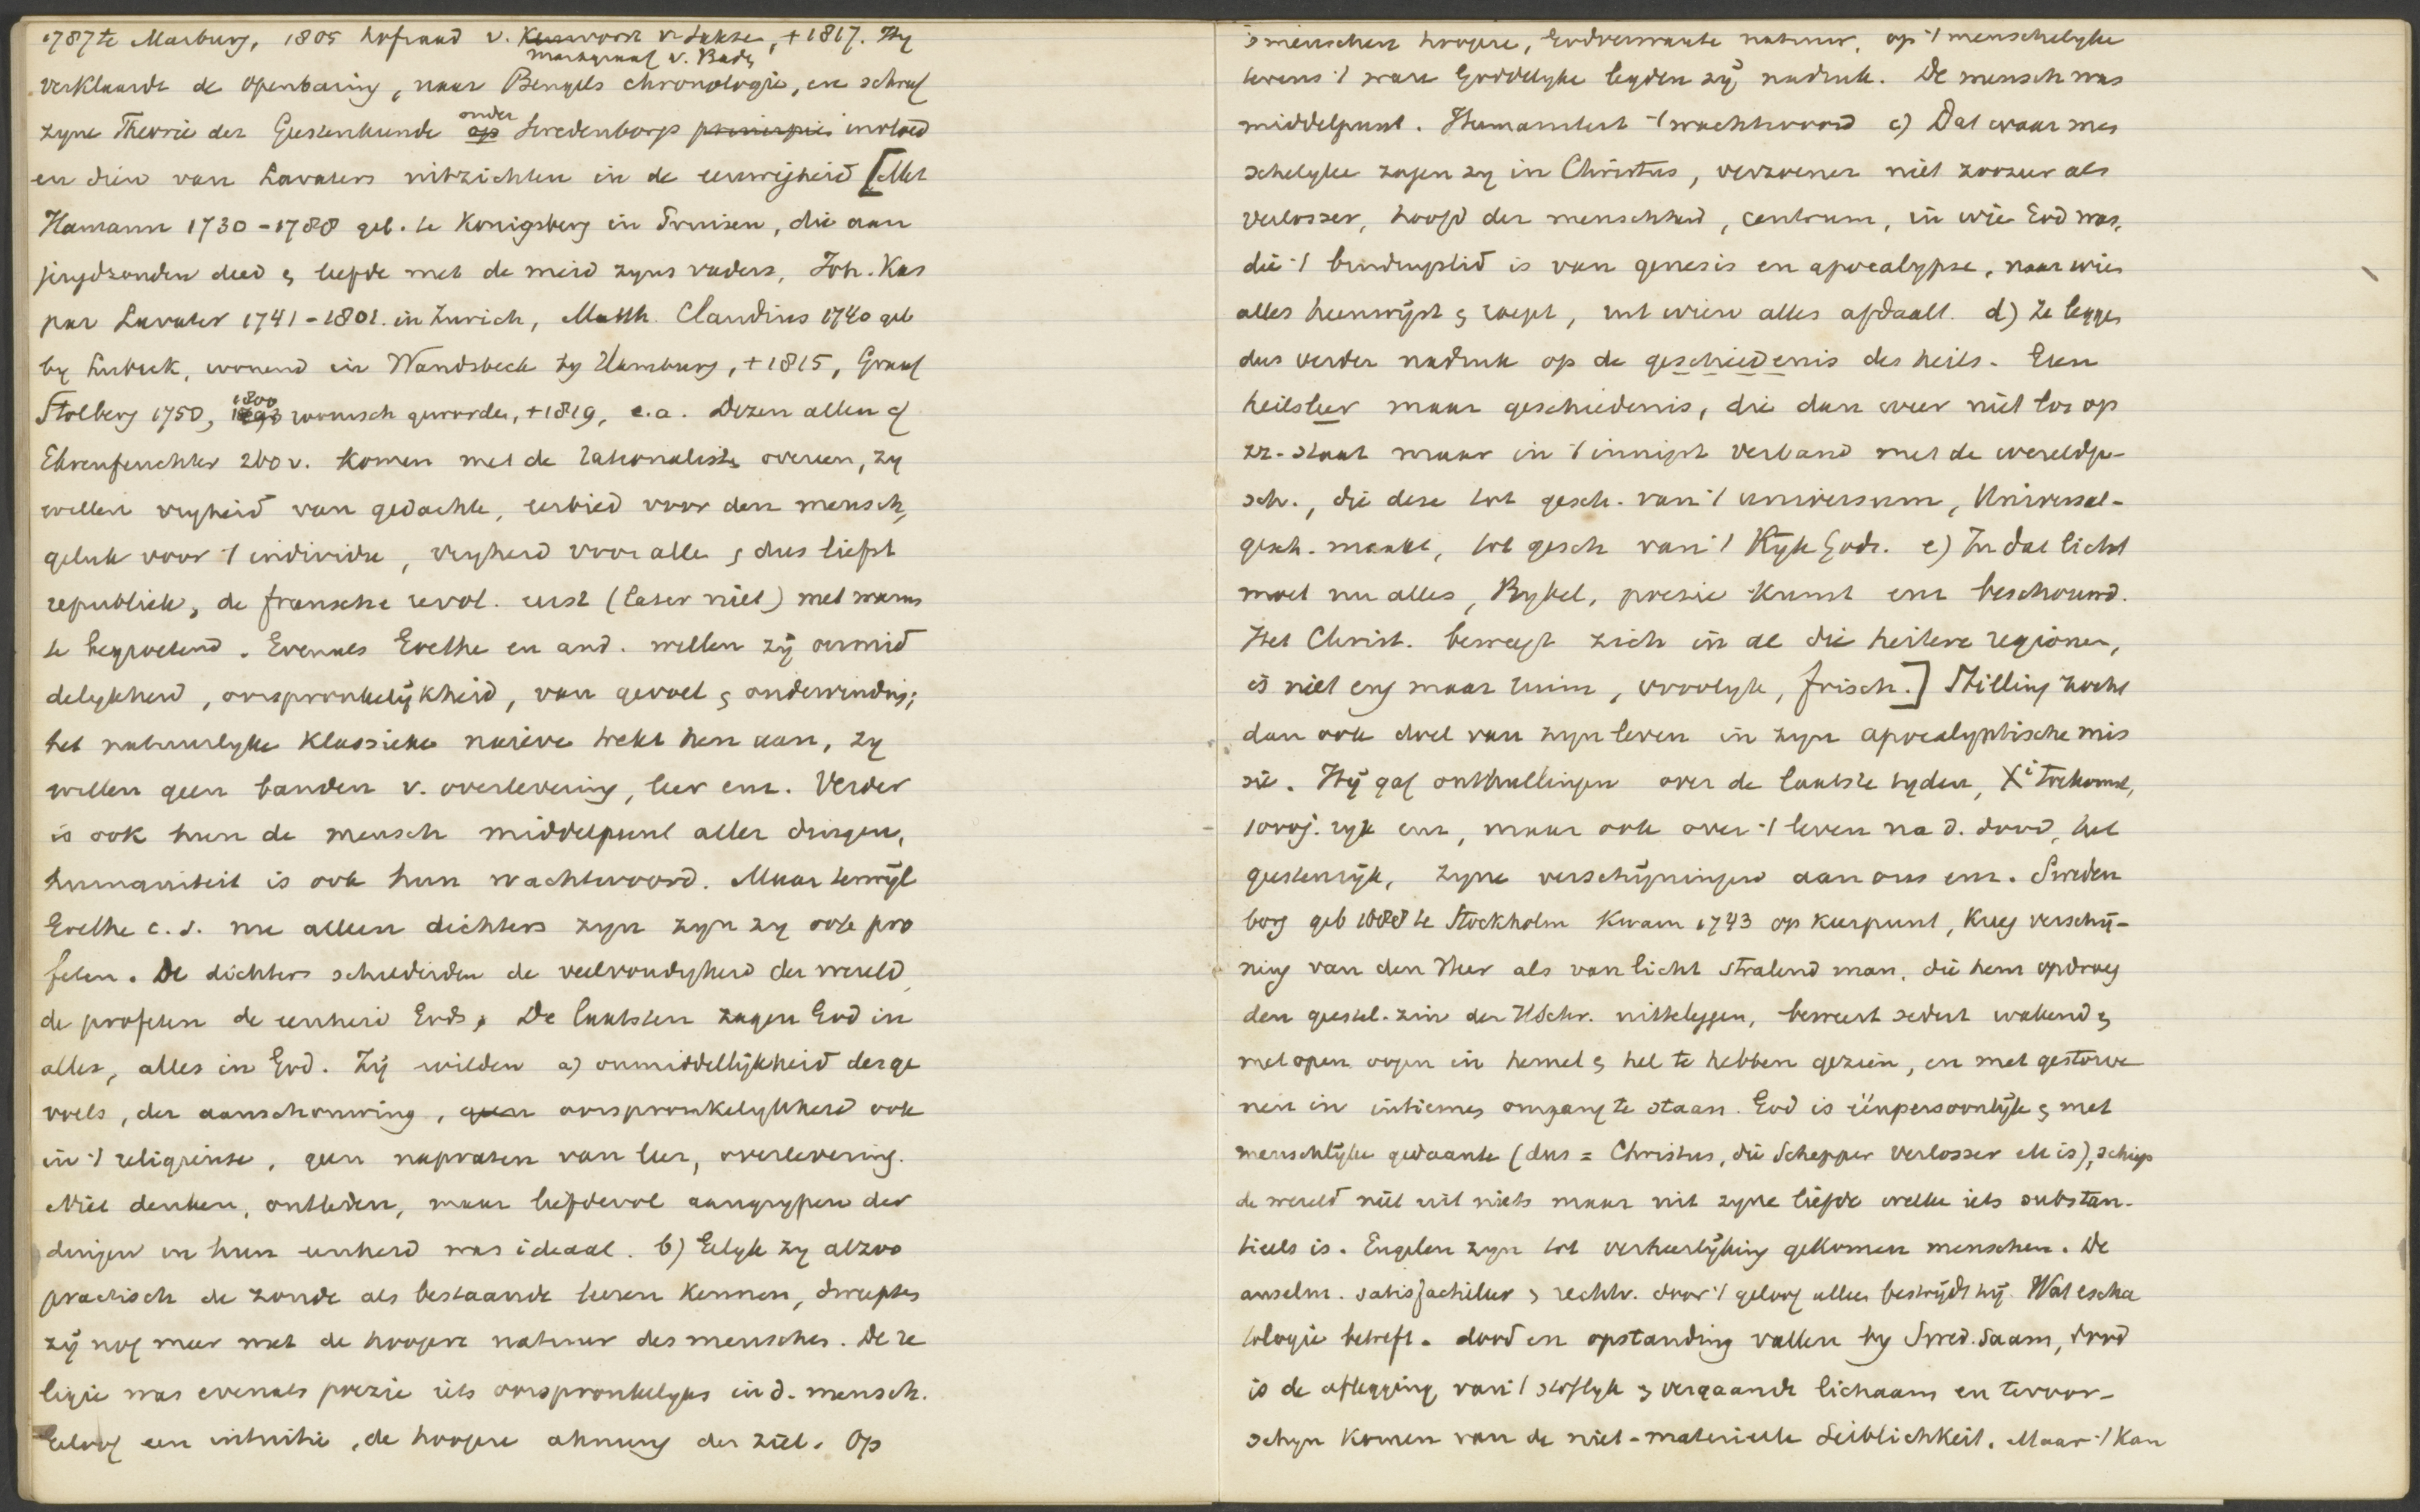 1787 te Marburg, 1805 hofraad v. Keurvorst v Sakse, +1817. Hy
markgraaf v. Baden
verklaarde de openbaring, naar Bengels chronologie, en schreef
zyne Theorie der Geestenkunde onder op Swedenborgs principie invloed
en dien van Lavaters uitzichten in de eeuwigheid [Met
Hamann 1730-1788 geb. te Konigsberg in Pruisen, die aan
jeugdzonden deed & leefde met de meid zyns vaders, Joh. Kas
par Lavater 1741-1801. in Zurich, Matth. Claudius 1740 geb
by Lubeck, wonend in Wandsbeck by Hamburg, +1815, Graaf
Stolberg 1750, 1800 roomsch geworden, +1819, e.a. Dezen allen cf
Ehrenfeuchter 260 v. komen met de rationalisten overeen, zy
willen vryheid van gedachte, eerbied voor den mensch,
geluk voor 't individu, vryheid voor alle, & dus liefst
republiek, de fransche revol. eerst (later niet) met warmte
te begroetend. Evenals Goethe en and. willen zy onmid
delykheid, oorspronkelykheid, van gevoel & ondervinding;
het natuurlyke klassieke naïeve trekt hen aan, zy
willen geen banden v. overlevering, leer enz. Verder
is ook hun de mensch middelpunt aller dingen,
humaniteit is ook hun wachtwoord. Maar terwyl
Goethe c.s. nu alleen dichters zyn zyn zy ook pro
feten. De dichters schilderden de veelvoudigheid der wereld,
de profeten de eenheid Gods, De laatsten zagen God in
alles, alles in God. Zy wilden a) onmiddellykheid des ge
voels, der aanschouwing, geen oorspronkelykheid ook
in 't religieuse, geen napraten van leer, overlevering.
Niet denken, ontleden, maar liefdevol aangrypen der
dingen in hun eenheid was ideaal. b) Gelyk zy alzoo
practisch de zonde als bestaande leeren kennen, dweepten
zy nog meer met de hoogere natuur des menschen. De re
ligie was evenals poezie iets oorspronkelyks in d. mensch.
Geloof een intuitie, de hoogere ahnung der ziel. Op
's menschen hoogere, Godverwante natuur, op 't menschelyke
tevens 't ware Goddelyke legden zy nadruk. De mensch was
middelpunt. Humaniteit 't wachtwoord c) Dat waar men
schelyke zagen zy in Christus, verzoener niet zoozeer als
verlosser, hoofd der menschheid, centrum, in wie God was,
die 't eindryslid is van genesis en apocalypse, naar wien
alles heenwyst & roept, uit wien alles afdaalt. d) Ze leggen
dus verder nadruk op de geschiedenis des heils. Geen
heilsleer maar geschiedenis, die dan weer niet los op
zz. staat maar in 't innigst verband met de wereldge-
sch., die deze tot gesch. van 't universum, Universal-
gesch. maakt, tot gesch van 't Ryk Gods. e) In dat licht
moet nu alles, Bybel, poezie kunst enz beschouwd.
Het Christ. beweegt zich in al die heitere regionen,
is niet eng maar ruim, vroolyk, frisch.] Stilling zocht
dan ook doel van zyn leven in zyn apocalyptische mis
sie. Hy gaf onthullingen over de laatste tyden, Xi toekomst,
1000j. ryk enz, maar ook over 't leven na d. dood, het
geestenryk, zyne verschyningen aan ons enz. Sweden
borg geb 1688 te Stockholm kwam 1743 op keerpunt, kreeg verschy-
ning van den Heer als van licht stralend man, die hem opdroeg
den geestel. zin der HSchr. uitteleggen, beweert sedert wakend &
met open oogen in hemel & hel te hebben gezien, en met gestorve
nen in intiemen omgang te staan. God is éénpersoonlyk & met
menschlyke gedaante (dus = Christus, die Schepper Verlosser etc is), schiep
de wereld niet uit niets maar uit zyne liefde welke iets substan-
tieels is. Engelen zyn tot verheerlyking gekomen menschen. De
anselm. satisfactieleer & rechtv. door 't geloof alleen bestrydt hy. Wat escha
tologie betreft. dood en opstanding vallen by Swed. saam, dood
is de aflegging van 't stoflyk & vergaande lichaam en tevoor-
schyn komen van de niet-materieele Leiblichkeit. Maar 't kan